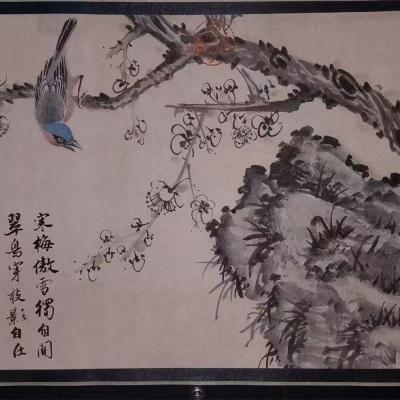 寒梅傲雪獨自開
翠鳥穿枝影自在